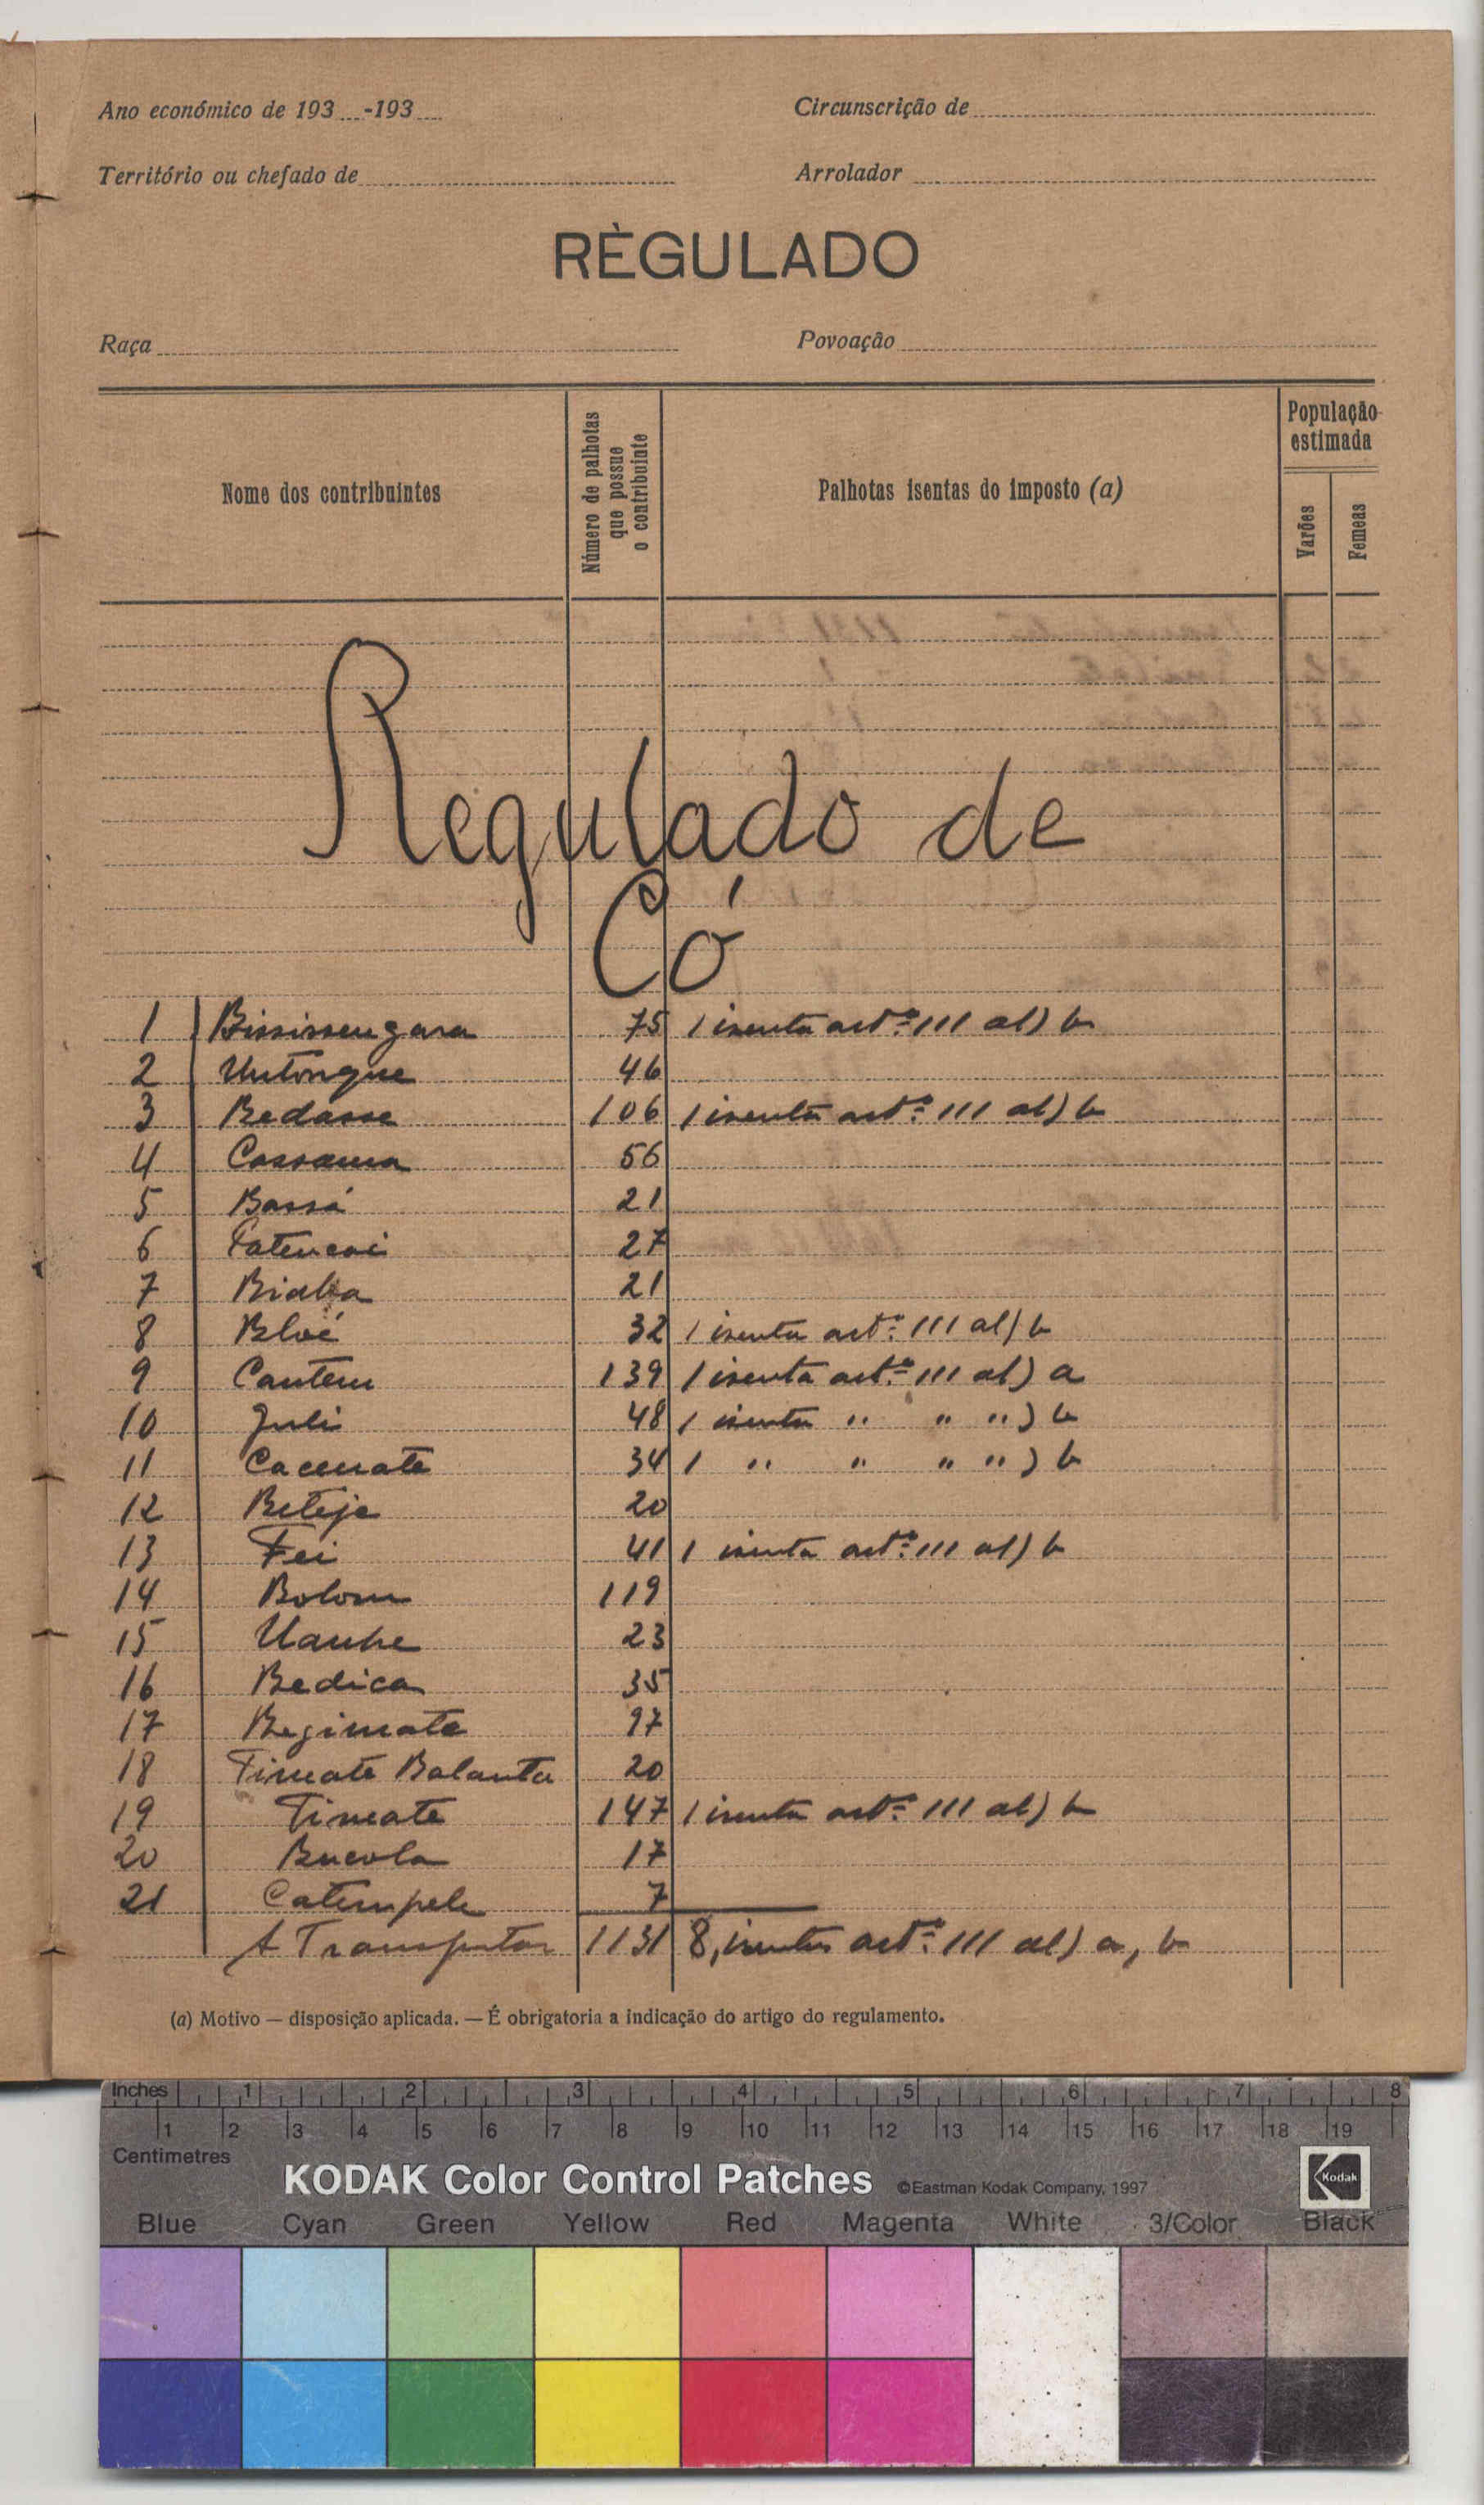 Ano económico de 193 -193
Circunscrição de
Território ou chefado de
Arrolador
RÈGULADO
Raça
Povoação
Nome dos contribuintes
Número de palhotas que possue o contribuinte
Palhotas isentas do imposto (a)
População estimada
Varões
Femeas
Regulado de
Có
1 Bississengara 75 1 isenta artº 111 al) b
2 Untongue 46
3 Bedasse 106 1 isenta artº 111 al) b
4 Cassama 56
5 Bassá 21
6 27
7 21
8 Bloé 32 1 isenta artº 111 al) b
9 Cantem 139 1 isenta artº 111 al) a
10 Juli 48 1 isenta " " " ) b
11 Cacenate 34 1 " " " " ) b
12 Beteje 20
13 Fei 41 1 isenta artº 111 al) b
14 Bolom 119
15 23
16 Bedica 35
17 Begimate 97
18 Timate Balanta 20
19 Timate 147 1 isenta artº 111 al) b
20 Bucola 17
21 Catempele 7
A Transportar 1131 8, isentas artº 111 al) a, b
(a) Motivo — disposição aplicada. — É obrigatoria a indicação do artigo do regulamento.
Inches 1 2 3 4 5 6 7 8
1 2 3 4 5 6 7 8 9 10 11 12 13 14 15 16 17 18 19
Centimetres
KODAK Color Control Patches ©Eastman Kodak Company, 1997 Kodak
Blue Cyan Green Yellow Red Magenta White 3/Color Black